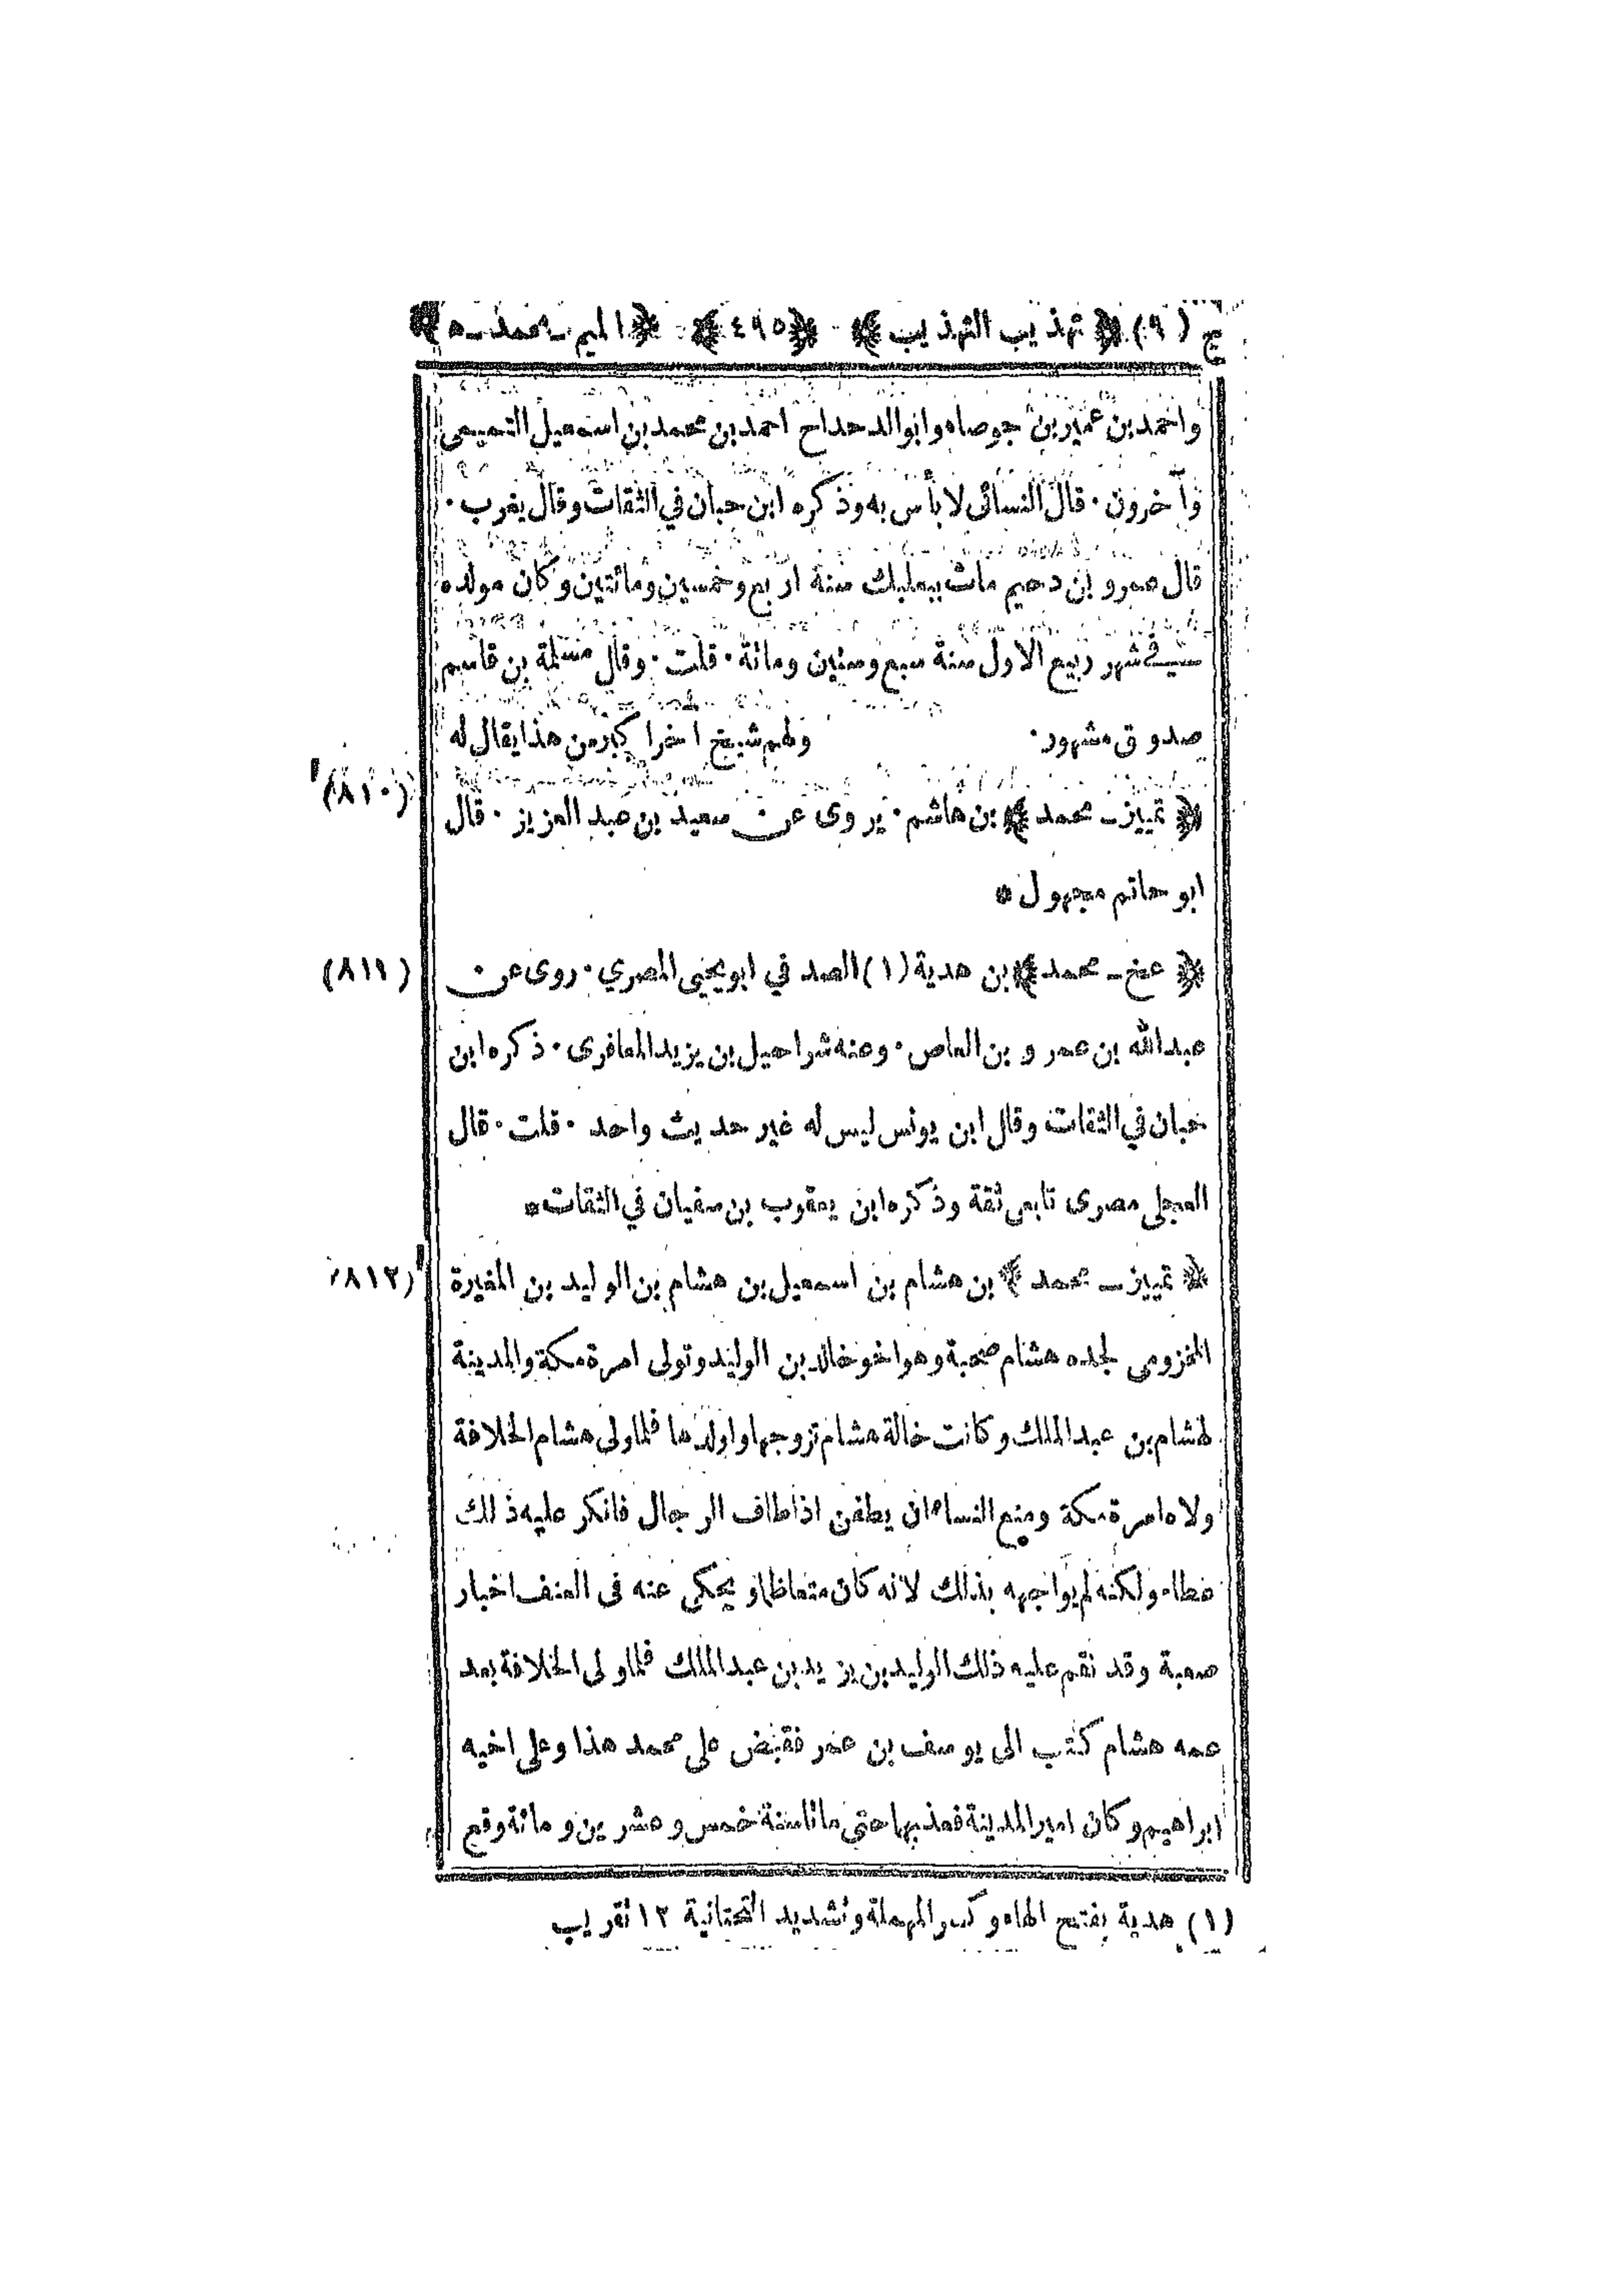 ج (٩) ﴿تهذيب التهذيب﴾ ﴿٤٩٥﴾ ﴿الميم - محمد - ه﴾
واحمد بن عمير بن جوصاء وابو الدحداح احمد بن محمد بن اسمعيل التميمي
وآخرون · قال النسائى لا بأس به وذكره ابن حبان في الثقات وقال يغرب ·
قال عمرو بن دحيم مات ببعلبك سنة اربع وخمسين ومائتين وكان مولده
في شهر ربيع الاول سنة سبع وستين ومائة · قلت · وقال مسلمة بن قاسم
صدوق مشهور · ولهم شيخ آخر اكبر من هذا يقال له
﴿تمييز - محمد﴾ بن هاشم · يروى عن سعيد بن عبد العزيز · قال
(٨١٠)
ابو حاتم مجهول *
﴿عخ - محمد﴾ بن هدية (١) الصدفي ابو يحيى المصري · روى عن ·
(٨١١)
عبد الله بن عمرو بن العاص · وعنه شراحيل بن يزيد المعافرى · ذكره ابن
حبان في الثقات وقال ابن يونس ليس له غير حديث واحد · قلت · قال
العجلى مصرى تابعى ثقة وذكره ابن يعقوب بن سفيان في الثقات *
﴿تمييز - محمد﴾ بن هشام بن اسمعيل بن هشام بن الوليد بن المغيرة
(٨١٢)
المخزومى لجده هشام صحبة وهو اخو خالد بن الوليد وتولى امرة مكة والمدينة
لهشام بن عبد الملك وكانت خالة هشام تزوجها واولدها فلما ولى هشام الخلافة
ولاه امرة مكة ومنع النساء ان يطفن اذا طاف الرجال فانكر عليه ذلك
عطاء ولكنه لم يواجهه بذلك لانه كان متعاظما ويحكى عنه فى العنف اخبار
صعبة وقد نقم عليه ذلك الوليد بن يزيد بن عبد الملك فلما ولى الخلافة بعد
عمه هشام كتب الى يوسف بن عمر فقبض على محمد هذا وعلى اخيه
ابراهيم وكان امير المدينة فعذبهما حتى ماتا سنة خمس وعشرين ومائة وقع
(١) هدية بفتح الهاء وكسر المهملة وتشديد التحتانية ١٢ تقريب